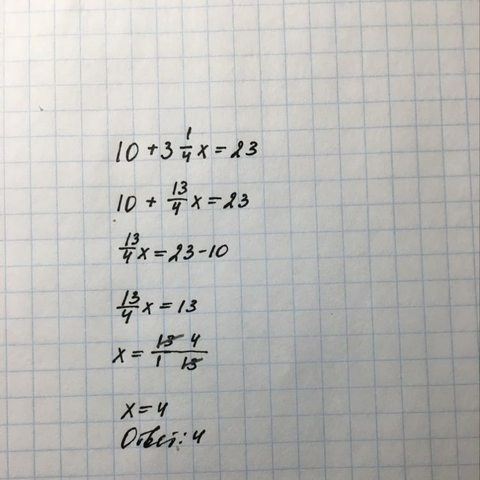 10 + 3 1/4 x = 23
10 + 13/4 x = 23
13/4 x = 23 - 10
13/4 x = 13
x = 13 4 / 1 13
x = 4
Ответ: 4